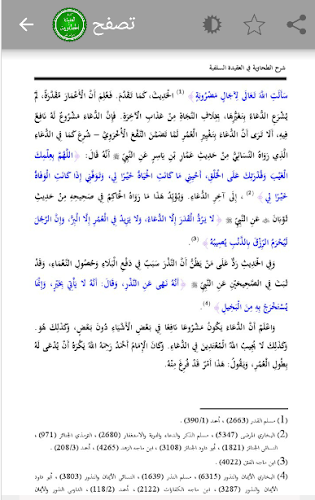 تصفح
شرح الطحاوية في العقيدة السلفية
سَأَلْتِ اللهَ تَعَالَى لِآجَالٍ مَضْرُوبَةٍ (1) الْحَدِيثَ، كَمَا تَقَدَّمَ. فَعُلِمَ أَنَّ الْأَعْمَارَ مُقَدَّرَةٌ، لَمْ
يُشْرَعِ الدُّعَاءُ بِتَغَيُّرِهَا، بِخِلَافِ النَّجَاةِ مِنْ عَذَابِ الْآخِرَةِ. فَإِنَّ الدُّعَاءَ مَشْرُوعٌ لَهُ نَافِعٌ
فِيهِ، أَلَا تَرَى أَنَّ الدُّعَاءَ بِتَغْيِيرِ الْعُمُرِ لَمَّا تَضَمَّنَ النَّفْعَ الْأُخْرَوِيَّ - شُرِعَ كَمَا فِي الدُّعَاءِ
الَّذِي رَوَاهُ النَّسَائِيُّ مِنْ حَدِيثِ عَمَّارِ بْنِ يَاسِرٍ عَنِ النَّبِيِّ ﷺ أَنَّهُ قَالَ: « اللَّهُمَّ بِعِلْمِكَ
الْغَيْبَ، وَقُدْرَتِكَ عَلَى الْخَلْقِ، أَحْيِنِي مَا كَانَتِ الْحَيَاةُ خَيْرًا لِي، وَتَوَفَّنِي إِذَا كَانَتِ الْوَفَاةُ
خَيْرًا لِي » (2) ، إِلَى آخِرِ الدُّعَاءِ. وَيُؤَيِّدُ هَذَا مَا رَوَاهُ الْحَاكِمُ فِي صَحِيحِهِ مِنْ حَدِيثِ
ثَوْبَانَ عَنِ النَّبِيِّ ﷺ « لَا يَرُدُّ الْقَدَرَ إِلَّا الدُّعَاءُ، وَلَا يَزِيدُ فِي الْعُمُرِ إِلَّا الْبِرُّ، وَإِنَّ الرَّجُلَ
لَيُحْرَمُ الرِّزْقَ بِالذَّنْبِ يُصِيبُهُ » (3).
وَفِي الْحَدِيثِ رَدٌّ عَلَى مَنْ يَظُنُّ أَنَّ النَّذْرَ سَبَبٌ فِي دَفْعِ الْبَلَاءِ وَحُصُولِ النَّعْمَاءِ، وَقَدْ
ثَبَتَ فِي الصَّحِيحَيْنِ عَنِ النَّبِيِّ ﷺ « أَنَّهُ نَهَى عَنِ النَّذْرِ، وَقَالَ: أَنَّهُ لَا يَأْتِي بِخَيْرٍ، وَإِنَّمَا
يُسْتَخْرَجُ بِهِ مِنَ الْبَخِيلِ » (4).
وَاعْلَمْ أَنَّ الدُّعَاءَ يَكُونُ مَشْرُوعًا نَافِعًا فِي بَعْضِ الْأَشْيَاءِ دُونَ بَعْضٍ، وَكَذَلِكَ هُوَ.
وَكَذَلِكَ لَا يُجِيبُ اللهُ الْمُعْتَدِينَ فِي الدُّعَاءِ. وَكَانَ الْإِمَامُ أَحْمَدُ رَحِمَهُ اللهُ يَكْرَهُ أَنْ يُدْعَى لَهُ
بِطُولِ الْعُمُرِ، وَيَقُولُ: هَذَا أَمْرٌ قَدْ فُرِغَ مِنْهُ.
(1) مسلم القدر (2663) ، أحمد (390/1) .
(2) البخاري المرضى (5347) ، مسلم الذكر والدعاء والتوبة والاستغفار (2680) ، الترمذي الجنائز (971) ،
النسائي الجنائز (1821) ، أبو داود الجنائز (3108) ، ابن ماجه الزهد (4265) ، أحمد (208/3) .
(3) ابن ماجه الفتن (4022) .
(4) البخاري الأيمان والنذور (6315) ، مسلم النذر (1639) ، النسائي الأيمان والنذور (3803) ، أبو داود
الأيمان والنذور (3287) ، ابن ماجه الكفارات (2122) ، أحمد (118/2) ، الدارمي النذور والأيمان